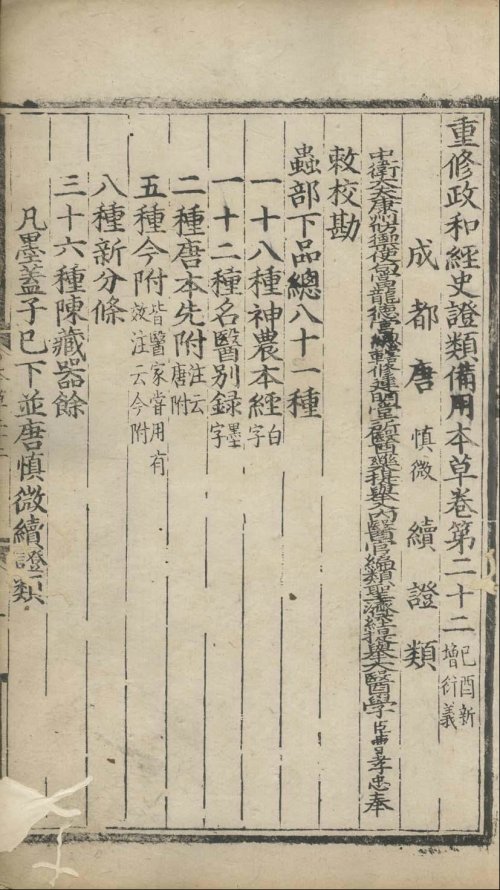 重修政和經史證類備用本草卷第二十二己酉新增衍義
成都唐慎微續證類
中衛大夫康州防禦使句當龍德宮總轄修建明堂所醫藥提舉入內醫官編類聖濟經提舉太醫學臣曹孝忠奉
敕校勘
蟲部下品總八十一種
一十八種神農本經白字
一十二種名醫別錄墨字
二種唐本先附注云唐附
五種今附皆醫家嘗用有效注云今附
八種新分條
三十六種陳藏器餘
凡墨蓋子已下並唐慎微續證類